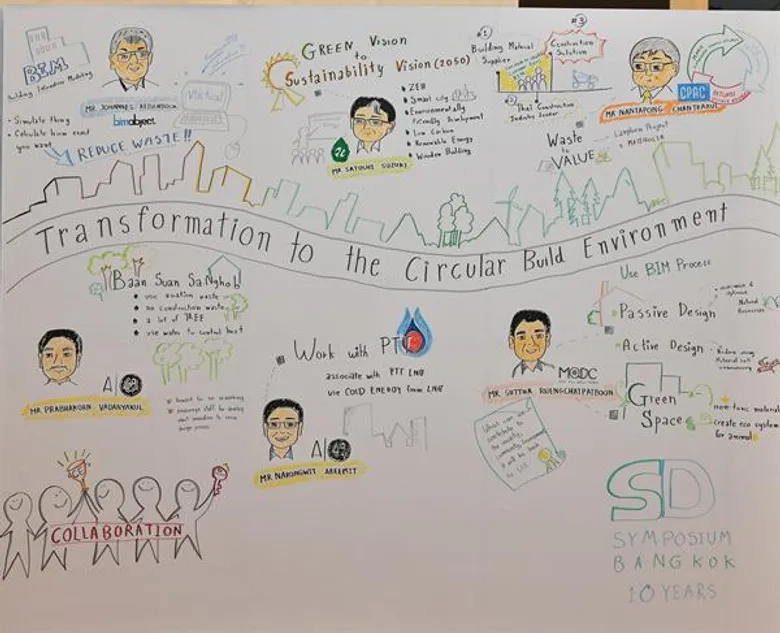 FOR
YOUR
BIM
Building Information Modeling
• Simulate thing
• Calculate how exact
you want
REDUCE WASTE!!
MR. JOHANNES
bimobject
Virtual
GREEN Vision
to
Sustainability Vision (2050)
• ZEB
• Smart city
• Environmentally
Friendly Development
• Low Carbon
• Renewable Energy
• Wooden Building
MR. SATOSHI SUZUKI
#1
Building Material
Supplier
#2
Thai Construction
Industry Leader
#3
Construction
Solution
Waste
to
VALUE
MR. NANTAPONG CHANTRAKUL
CPAC
Transformation to the Circular Build Environment
Baan Suan Sa-Nghob
• use aviation waste
• no construction waste
• a lot of TREE
• use water to control heat
MR. PRABHAKORN VADANYAKUL
A|49
Work with PTT
associate with PTT LNG
use COLD ENERGY from LNG
MR. NARONGWIT AREEMIT
A|49
Use BIM Process
• Passive Design
Natural
Resources
• Active Design
MQDC
MR. SUTTHA RUENGCHAIPAIBOON
Green
Space
non-toxic material
create eco system
for animal
What can we
contribute to
the society,
community, environment
it will be back
to US
COLLABORATION
SD
SYMPOSIUM
BANGKOK
10 YEARS